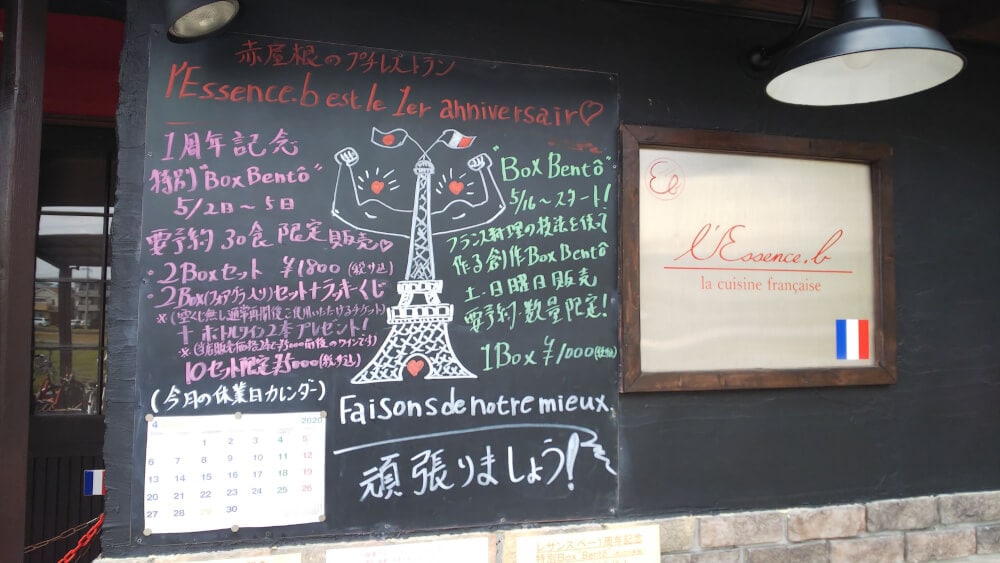 赤屋根のプチレストラン
l'Essence.b est le 1er anniversair♡
1周年記念
特別"Box Bentô"
5/2日～5日
要予約 30食限定販売♡
・2Boxセット ¥1800(税サ込)
・2Box(フォアグラ入り)セット+ラッキーくじ
※(空くじ無し通常再開後ご使用いただけるチケット)
+ ボトルワイン2本プレゼント!
10セット限定 ¥5000(税サ込)
"Box Bentô"
5/16～スタート!
フランス料理の技法を使って
作る創作Box Bentô
土・日曜日販売
要予約・数量限定!
1Box ¥1000
(今月の休業日カレンダー)
4 2020
1 2 3 4 5
6 7 8 9 10 11 12
13 14 15 16 17 18 19
20 21 22 23 24 25 26
27 28 29 30
Faisons de notre mieux
頑張りましょう!
l'Essence.b
la cuisine française
レサンスベー1周年記念
特別Box Bentô